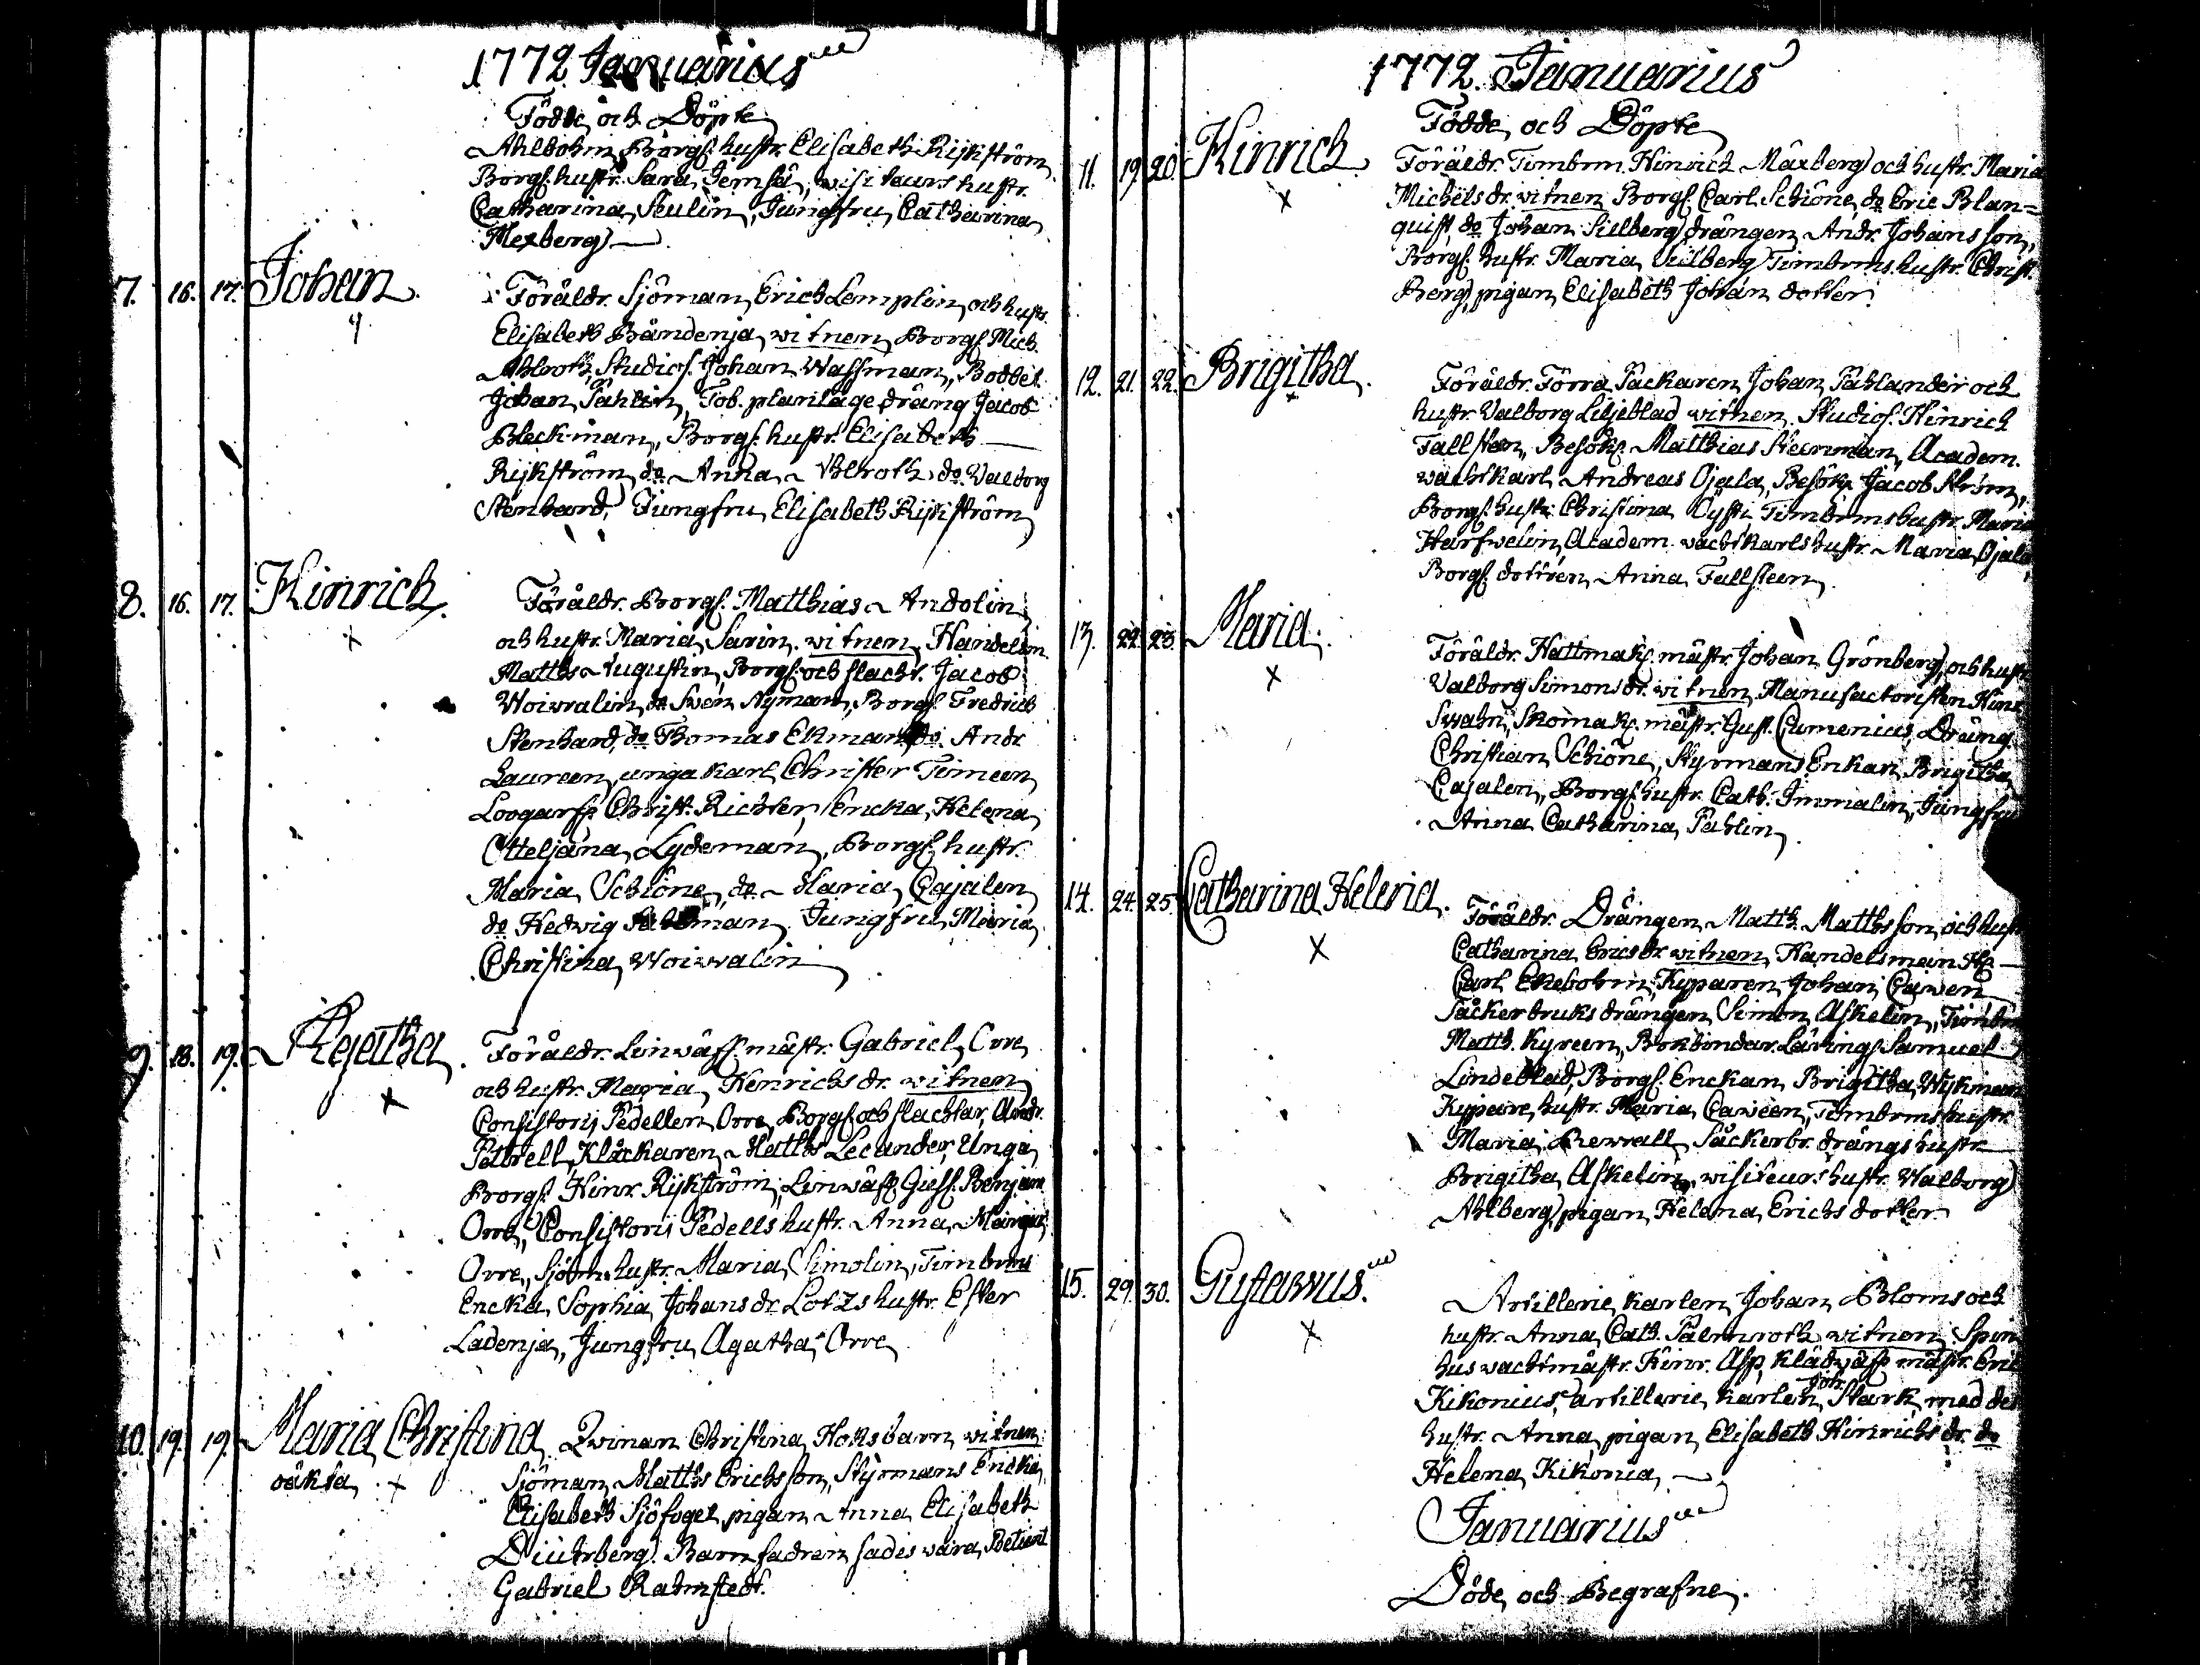 1772 Januarius
Födde och Döpte
Ahlbohm, Borgs. hustr. Elisabeth Rijkström
Borgs. hustr. Sara Jemsä, visiteurs hustr.
Catharina Seulin, Jungfru Catharina
Mexberg
7. 16. 17. Johan. Föräldr. Sjöman Erich Lemplin och hustr.
Elisabeth Brändenja, witnen Borgs. Mich.
Ahlroth, Studios. Johan Wassman, Bodbet.
Johan Pahlin, Tob. plantage dräng Jacob
Bleckman, Borgs. hustr. Elisabeth
Rijkström, do Anna Ahlroth, do Walborg
Stenhard, Jungfru Elisabeth Rijkström
8. 16. 17. Hinrich. Föräldr. Borgs. Matthias Andolin
och hustr. Maria Sarin. witnen Handelsm.
Matths Augustin, Borgs. och slacht. Jacob
Woivalin, do Swen Nyman, Borgs. Fredrich
Stenhard, do Thomas Ekman, do Andr.
Laureen, unga karl Christer Timeen
Christ. Richter, Encka Helena
Lydeman, Borgs. hustr.
Maria Schiöne, do Maria Cajalen
do Hedwig Jungfru Maria
Christina Woivalin
9. 18. 19. Agatha. Föräldr. Linwäff. mästr. Gabriel Orre
och hustr. Maria Henrichs dr. witnen
Consistorij Pedellen Orre, Borgs. och slachtar Andr.
Påtrell, Klåckaren Matths Lecander, Unga
Borgs. Hinr. Rijkström, Linwäf. Giess. Benjam.
Orre, Consistorij Pedells hustr. Anna Margret
Orre, Sjöm. hustr. Maria Simolin, Timbrms
Encka Sophia Johans dr. Lotzs hustr. Ester
Ladenja, Jungfru Agatha Orre
10. 19. 19. Maria Christina Qwinan Christina Hoks barn witnen
oäkta. Sjöman Matths Erichsson, Styrmans Encka
Elisabeth Sjöfogel, pigan Anna Elisabeth
Duhrberg. Barn fadren sades wara Betient
Gabriel Rahmstedt.
1772. Januarius
Födde och Döpte
11. 19. 20. Hinrich Föräldr. Timbrm. Hinrich Mäxberg och hustr. Maria
Michels dr. witnen Borgs. Carl Schiöne, do Eric Blan=
quist, do Johan Sillberg, drängen Andr. Johansson,
Borgs. hustr. Maria Silberg, Timbrms. hustr. Christ.
Berg, pigan Elisabeth Johan dotter.
12. 21. 22. Brigitha. Föräldr. Förra Packaren Johan Pahlander och
hustr. Walborg Liljeblad witnen Studios. Hinrich
Fallsten, Besökr. Matthias Steenman, Academ.
wachtkarl Andreas Ojala, Besökr. Jacob Ström,
Borgs. hustr. Christina Timbrms hustr. Maria
Academ. wachtkarls hustr. Maria Ojala
Borgs. dottren Anna Fallsteen.
13. 22. 23. Maria. Föräldr. Hattmak. mästr. Johan Grönberg, och hustr.
Valborg Simons dr. witnen Manufactoristen Hinr.
Swahn, Skomak. mästr. Gust. Cumenius, Dräng.
Christian Schiöne, Styrmans Enkan Brigitha
Cajalen, Borgs. hustr. Cath. Immalin, Jungfru
Anna Catharina Pahlin.
14. 24. 25. Catharina Helena. Föräldr. Drängen Matth. Matthsson och hustr.
Catharina Erics dr. witnen Handelsman Hr.
Carl Ekebohm, Kyparen Johan Cawen
Såckerbruks drängen Simon Askelin, Timbrm
Matth. Kyreen, Bokbindar Lärling. Samuel
Lindeblad, Borgs. Enckan Brigitha Wijkman
Kypare hustr. Maria Caween, Timbrms hustr.
Maria Rewall, Såckerbr. drängs hustr.
Brigitha Askelin, wisiteurs hustr. Walborg
Ahlberg, pigan Helena Erichs dotter.
15. 29. 30. Gustawus. Artillerie karlen Johan Bloms och
hustr. Anna Cath. Palmroth witnen Spin
hus wachtmästr. Hinr. Asp, klädwäf. mästr. Eric
Kikonius, artillerie karlen Joh. Stark med des
hustr. Anna, pigan Elisabeth Hinrichs dr. do
Helena Kikonia,
Januarius
Döde och Begrafne.